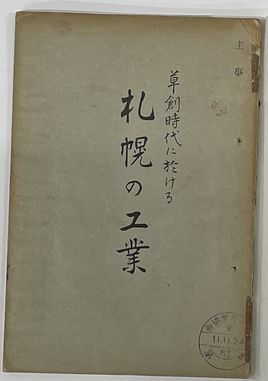 主事
草創時代に於ける
札幌の工業
11.11.24